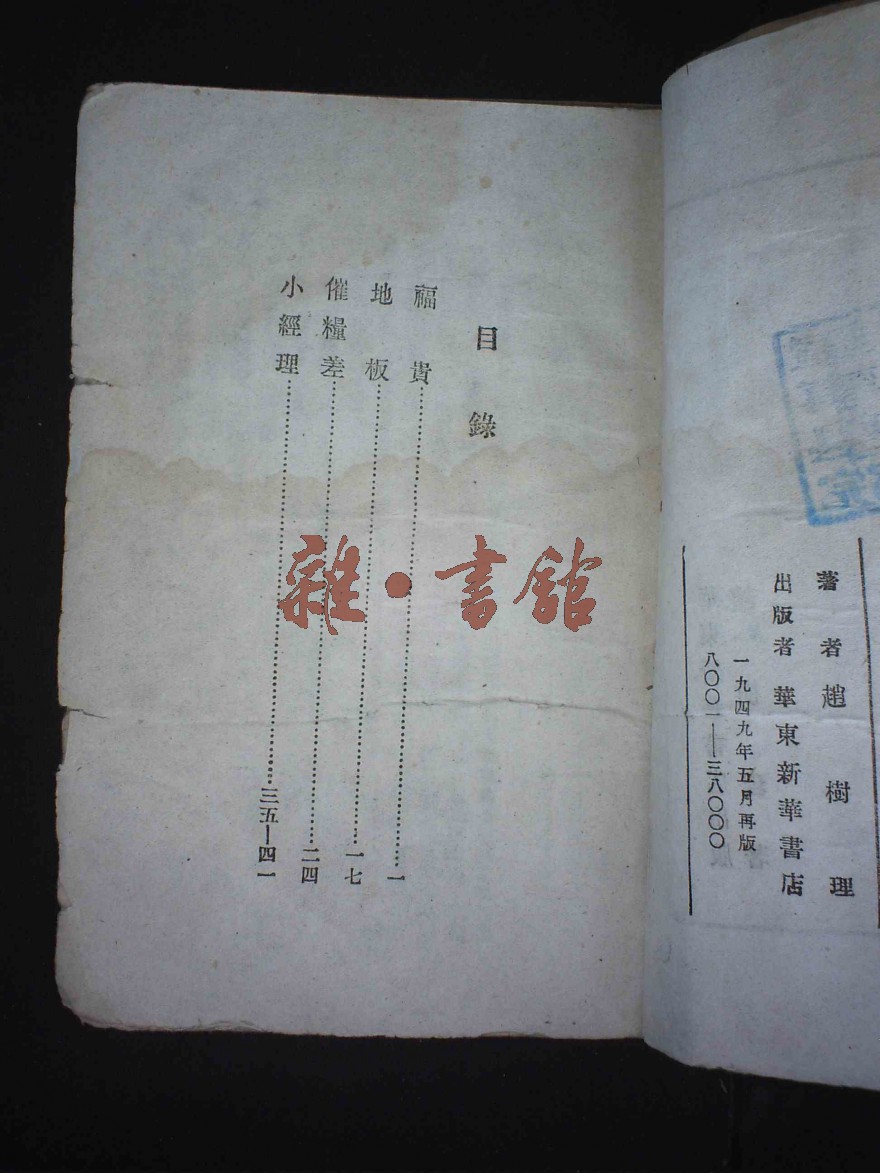 著者趙樹理
出版者華東新華書店
一九四九年五月再版
八〇〇一——三八〇〇〇
目錄
福貴……一
地板……一七
催糧差……二四
小經理……三五—四一
雜·書館